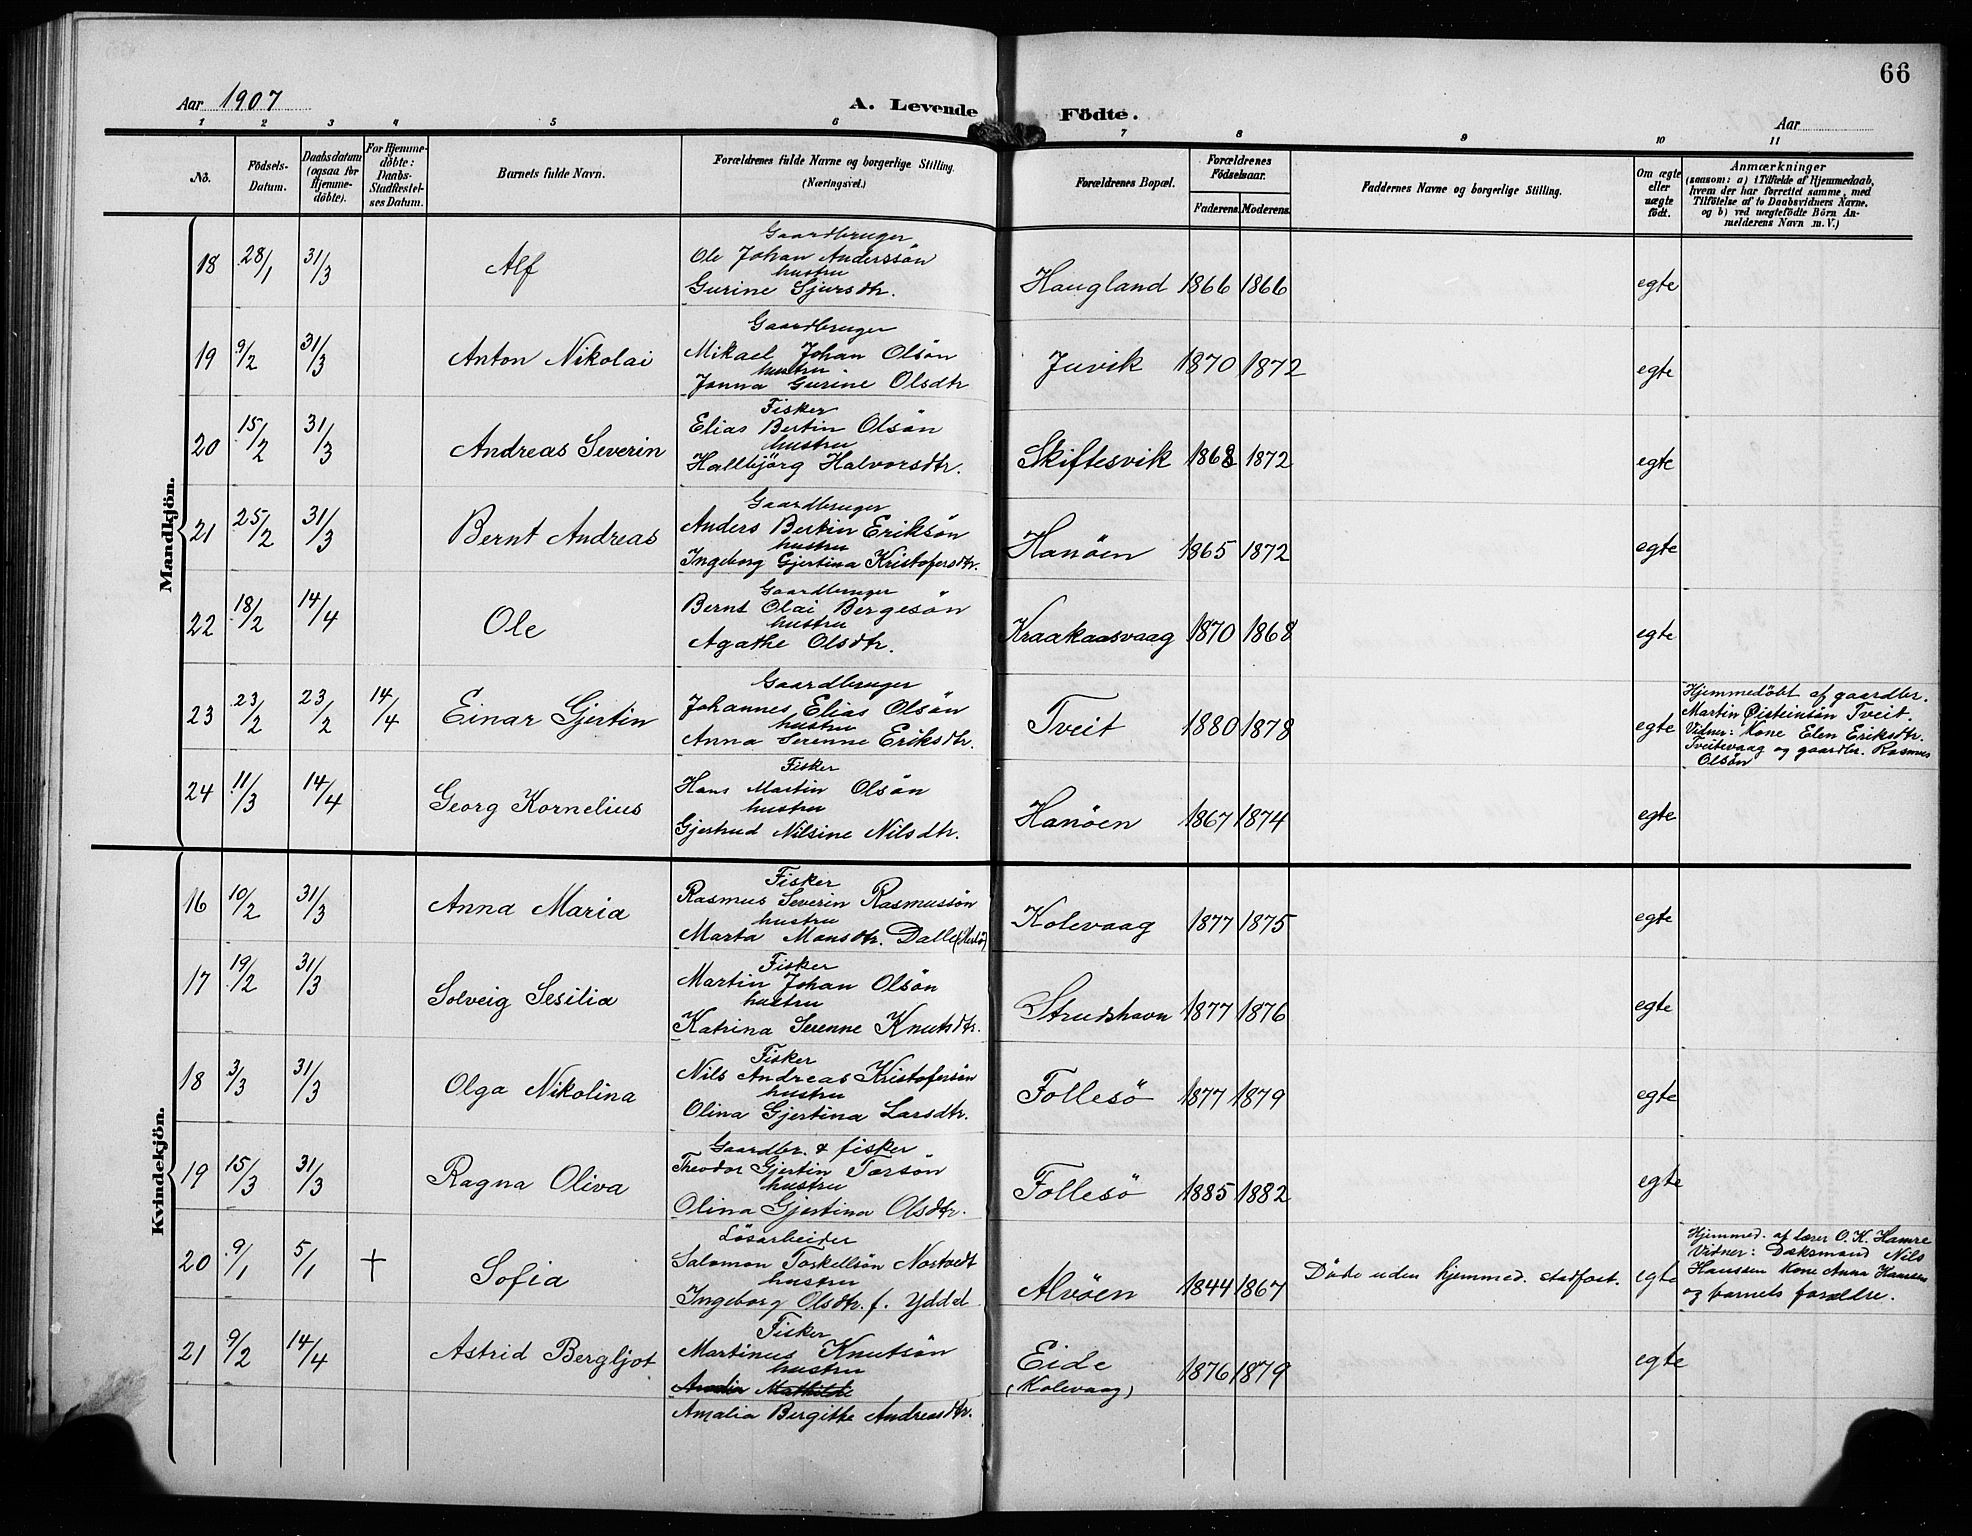 66
Aar 1907
A. Levende Födte.
Aar
1 2 3 4 5 6 7 8 9 10 11
No.
Födsels-Datum.
Daabsdatum (ogsaa for Hjemmedöbte).
For Hjemmedöbte: Daabs-Stadfæstelses Datum.
Barnets fulde Navn.
Forældrenes fulde Navne og borgerlige Stilling. (Næringsvei.)
Forældrenes Bopæl.
Forældrenes Födselsaar.
Faderens. Moderens.
Faddernes Navne og borgerlige Stilling.
Om ægte eller uægte födt.
Anmærkninger
(saasom: a) i Tilfælde af Hjemmedaab, hvem der har forrettet samme, med Tilföielse af to Daabsvidners Navne, og b) ved uægtefödte Börn Anmelderens Navn m. V.)
Mandkjön.
Gaardbruger
18 28/1 31/3 Alf Ole Johan Anderssön Haugland 1866 1866 egte
hustru
Gurine Sjursdtr.
Gaardbruger
19 9/2 31/3 Anton Nikolai Mikael Johan Olsön Juvik 1870 1872 egte
hustru
Janna Gurine Olsdtr
Fisker
20 15/2 31/3 Andreas Severin Elias Bertin Olsön Skiftesvik 1868 1872 egte
hustru
Hallbjörg Halvorsdtr.
Gaardbruger
21 25/2 31/3 Bernt Andreas Anders Bertin Eriksön Hanöen 1865 1872 egte
hustru
Ingeborg Gjertina Kristofersdtr.
Gaardbruger
22 18/2 14/4 Ole Bernt Olai Bergesön Kraakaasvaag 1870 1868 egte
hustru
Agathe Olsdtr.
Gaardbruger
23 23/2 23/2 14/4 Einar Gjertin Johannes Elias Olsön Tveit 1880 1878 egte
hustru
Anna Serenne Eriksdtr.
Hjemmedöbt af gaardbr.
Martin Öisteinsön Tveit.
Vidner: Kone Elen Eriksdtr.
Tveitevaag og gaardbr. Rasmus
Olsön
Fisker
24 11/3 14/4 Georg Kornelius Hans Martin Olsön Hanöen 1867 1874 egte
hustru
Gjertrud Nilsine Nilsdtr.
Kvindekjön.
Fisker
16 10/2 31/3 Anna Maria Rasmus Severin Rasmussön Kolevaag 1877 1875 egte
hustru
Marta Monsdtr. Dalle
Fisker
17 19/2 31/3 Solveig Sesilia Martin Johan Olsön Strudshavn 1877 1876 egte
hustru
Katrina Serenne Knutsdtr.
Fisker
18 3/3 31/3 Olga Nikolina Nils Andreas Kristofersön Follesö 1877 1879 egte
hustru
Olina Gjertina Larsdtr.
Gaardbr. & fisker
19 15/3 31/3 Ragna Oliva Theodor Gjertin Torsön Follesö 1885 1882 egte
hustru
Olina Gjertina Olsdtr.
Lösarbeider
20 9/1 5/1 + Sofia Salomon Torkellsön Nortvedt Alvöen 1844 1867 Döde uden hjemmed. stadfæst. egte
hustru
Ingeborg Olsdtr. f. Yddal
Hjemmed. af lærer O. K. Hamre
Vidner: Dæksmand Nils
Hanssen Kone Anna Hanssen
og barnets forældre.
Fisker
21 9/2 14/4 Astrid Bergljot Martinus Knutsön Eide (Kolevaag) 1876 1879 egte
hustru
Mathilde
Amalia Bergitte Andreasdtr.